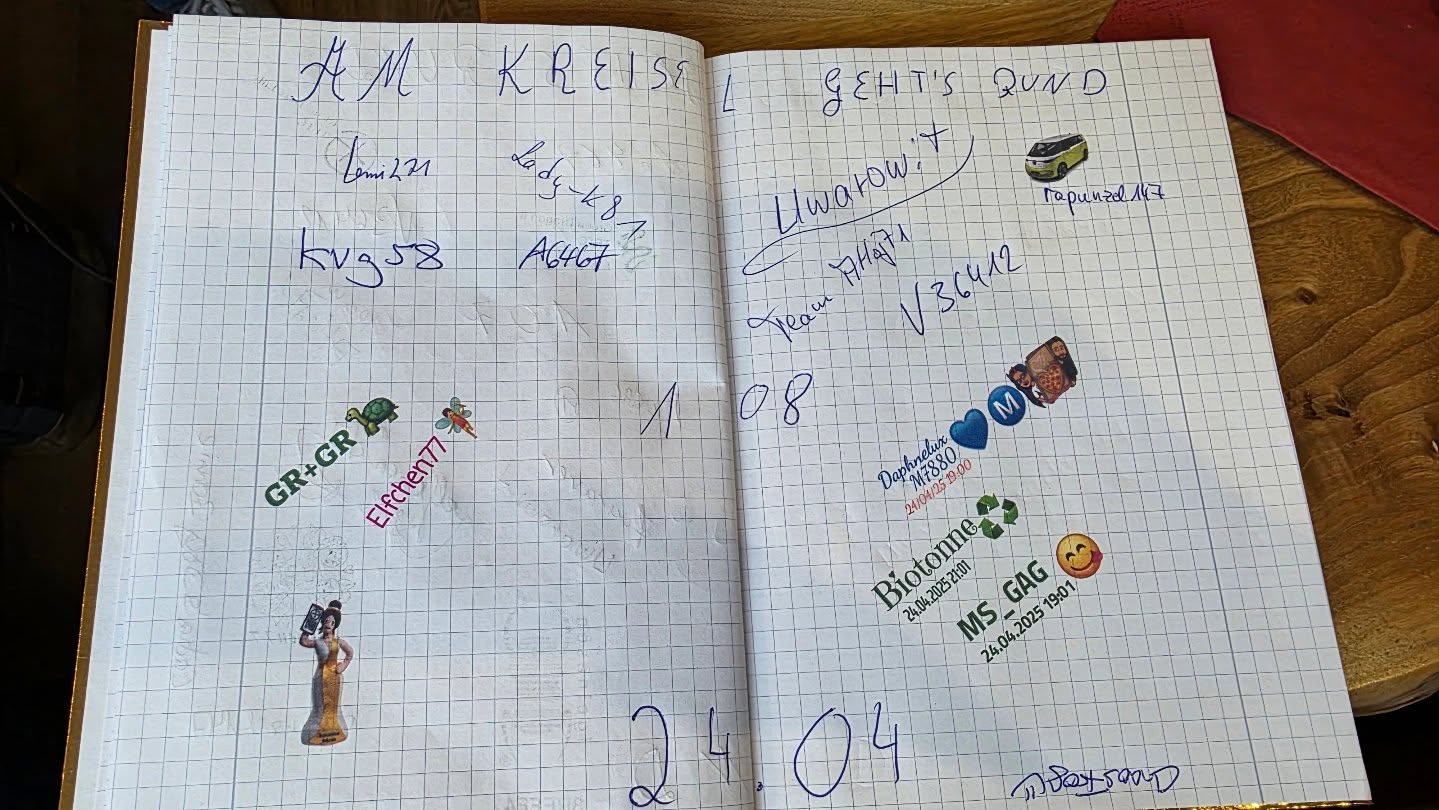 AM KREISEL GEHT'S RUND
Lady-K8
kvg58
A6467
Uwarowit
Rapunzel147
Team
V36412
1 08
GR+GR
Elfchen77
M
Daphnelux
M7880
24/04/25 19:00
Biotonne
24.04.2025 21:01
MS_GAG
24.04.2025 19:01
24.04